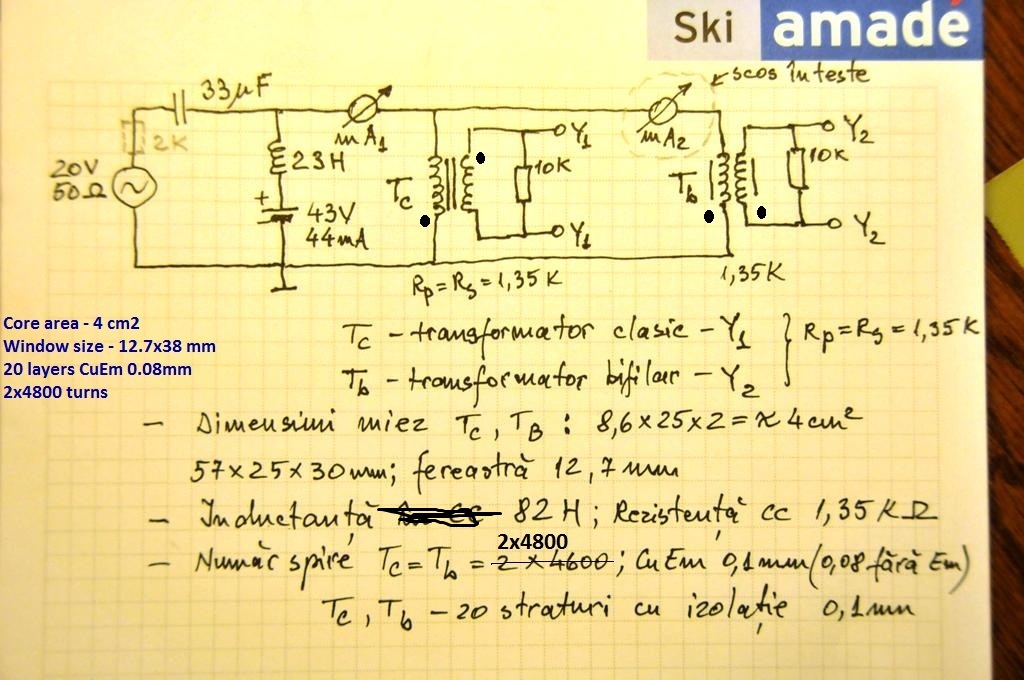 Ski amadé
← scos în teste
33µF
mA₁
mA₂
2K
20V
50Ω
23H
+
43V
44mA
Tc
10K
Y₁
Y₁
Tb
10K
Y₂
Y₂
Rp=Rs=1,35K
1,35K
Core area - 4 cm2
Window size - 12.7x38 mm
20 layers CuEm 0.08mm
2x4800 turns
Tc - transformator clasic - Y₁
Tb - transformator bifilar - Y₂
Rp=Rs=1,35K
- Dimensiuni miez Tc, TB : 8,6×25×2=≈4cm²
57×25×30mm; fereastră 12,7mm
- Inductanță 82H; Rezistență cc 1,35KΩ
2x4800
- Număr spire Tc=Tb= 2×4600; CuEm 0,1mm (0,08 fără Em)
Tc, Tb - 20 straturi cu izolație 0,1mm